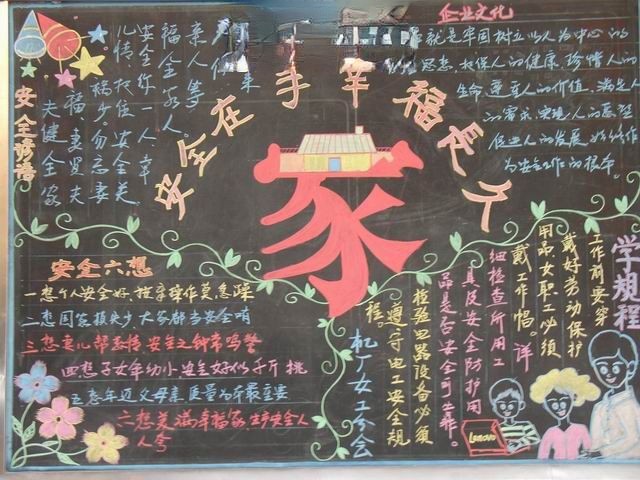 企业文化
就是牢固树立以人为中心的
思想,
人的健康珍惜人的
生命,尊重人的价值,满足人
的需求,实现人的愿望
促进人的发展,始终作
为安全工作的根本。
安全在手幸福长久
家
安全
来
亲人等
福全家人。
安全你一人,幸
安全关
勿忘妻
福妻贤夫
夫健全家
安全六想
一想个人安全好,按章操作莫急躁
二想国家损失少大家都当安全哨
三想妻儿
安全之钟常鸣警
四想子女年幼小安全好似千斤挑
五想年近父母亲质量为本最重要
六想美满幸福家生产安全人
人夸
学规程
工作前要穿
戴好劳动保护
用品,女职工必须
戴工作帽。详
细检查所用工
具及安全防护用
品是否安全可靠。
检验电路设备必须
遵守电工安全规
程。
机厂女工分会
Lenovo